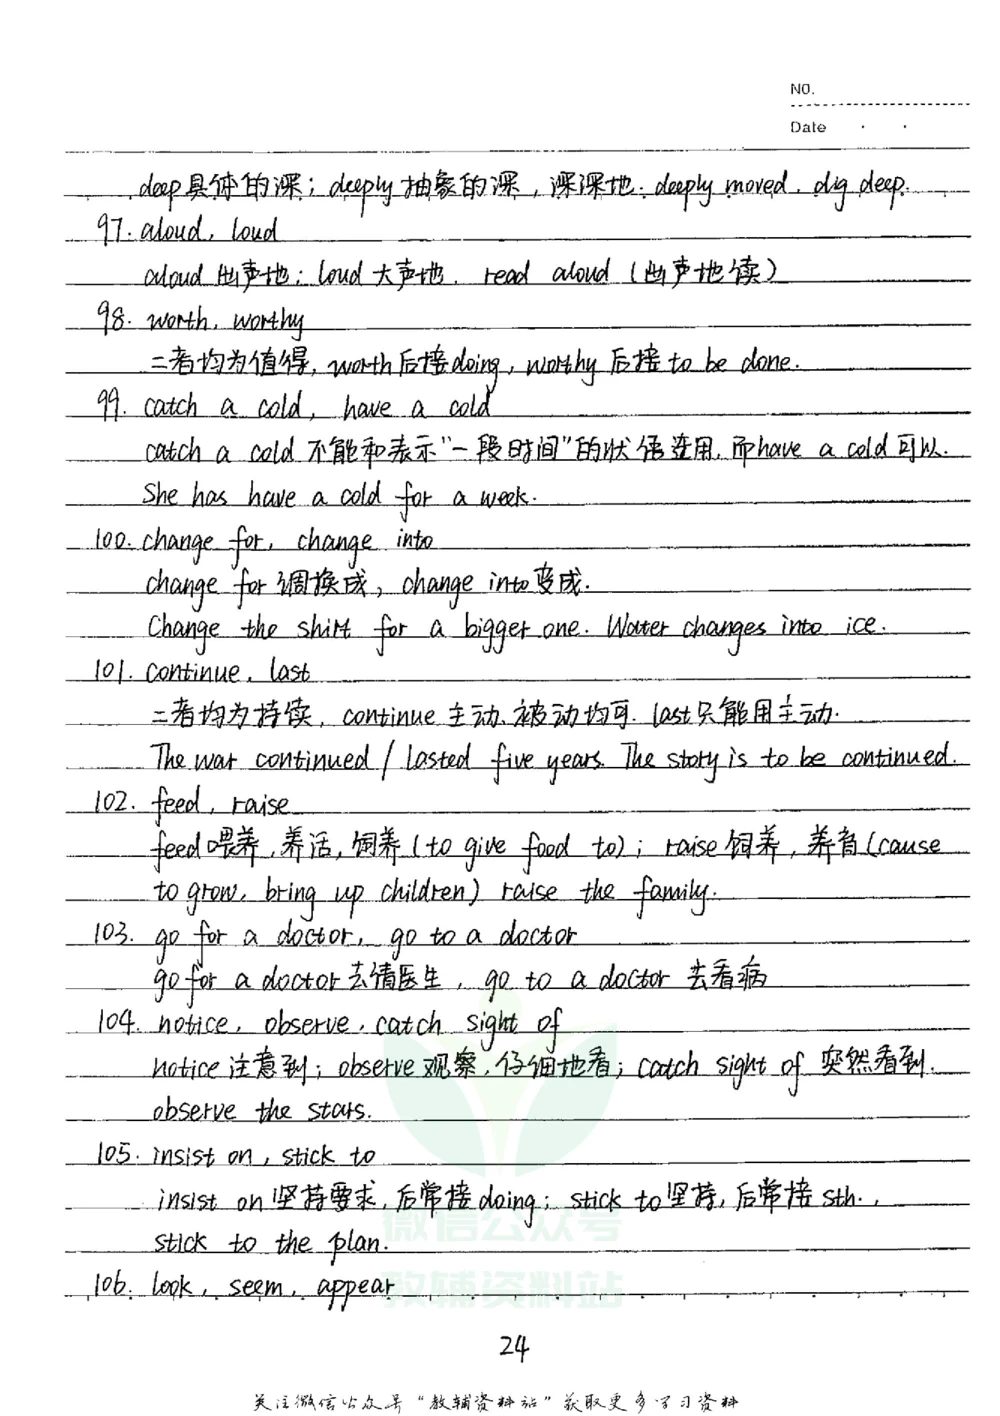 NO.
Date
deep具体的深；deeply抽象的深，深深地. deeply moved. dig deep.
97. aloud, loud
aloud出声地；loud大声地. read aloud (出声地读)
98. worth, worthy
二者均为值得, worth后接doing, worthy后接to be done.
99. catch a cold, have a cold
catch a cold不能和表示“一段时间”的状语连用, 而have a cold可以.
She has have a cold for a week.
100. change for, change into
change for 调换成, change into变成.
Change the shirt for a bigger one. Water changes into ice.
101. continue, last
二者均为持续, continue主动、被动均可. last只能用主动.
The war continued / lasted five years. The story is to be continued.
102. feed, raise
feed喂养, 养活, 饲养 (to give food to); raise饲养, 养育 (cause
to grow, bring up children) raise the family.
103. go for a doctor, go to a doctor
go for a doctor去请医生, go to a doctor 去看病
104. notice, observe, catch sight of
notice注意到; observe观察, 仔细地看; catch sight of 突然看到.
observe the stars.
105. insist on, stick to
insist on坚持要求, 后常接doing; stick to坚持, 后常接sth.,
stick to the plan.
106. look, seem, appear
微信公众号
教辅资料站
24
关注微信公众号“教辅资料站”获取更多学习资料